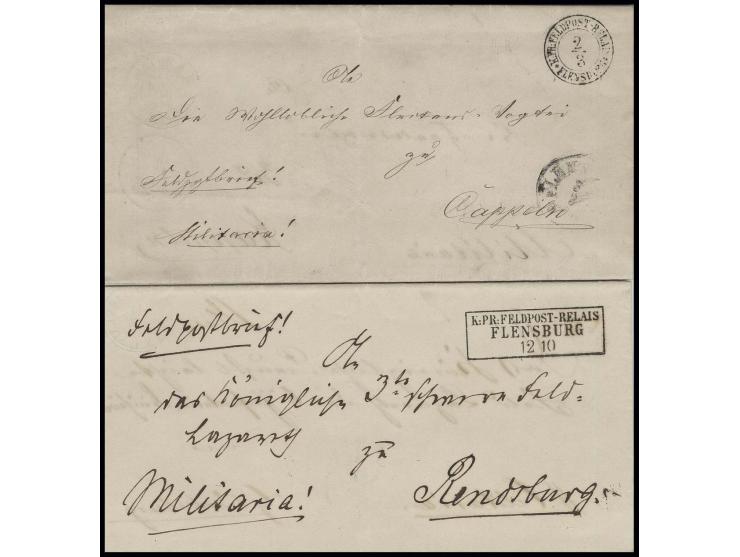 K:PR:FELDPOST-RELAIS
2/3
FLENSBURG
An
Die Wohllöbliche Flectens-Vogtei
zu
Feldpostbrief!
Cappeln
Militaria!
Feldpostbrief!
K:PR:FELDPOST-RELAIS
FLENSBURG
12 10
An
das Königliche 3te schwere Feld-
Lazareth
zu
Militaria!
Rendsburg.